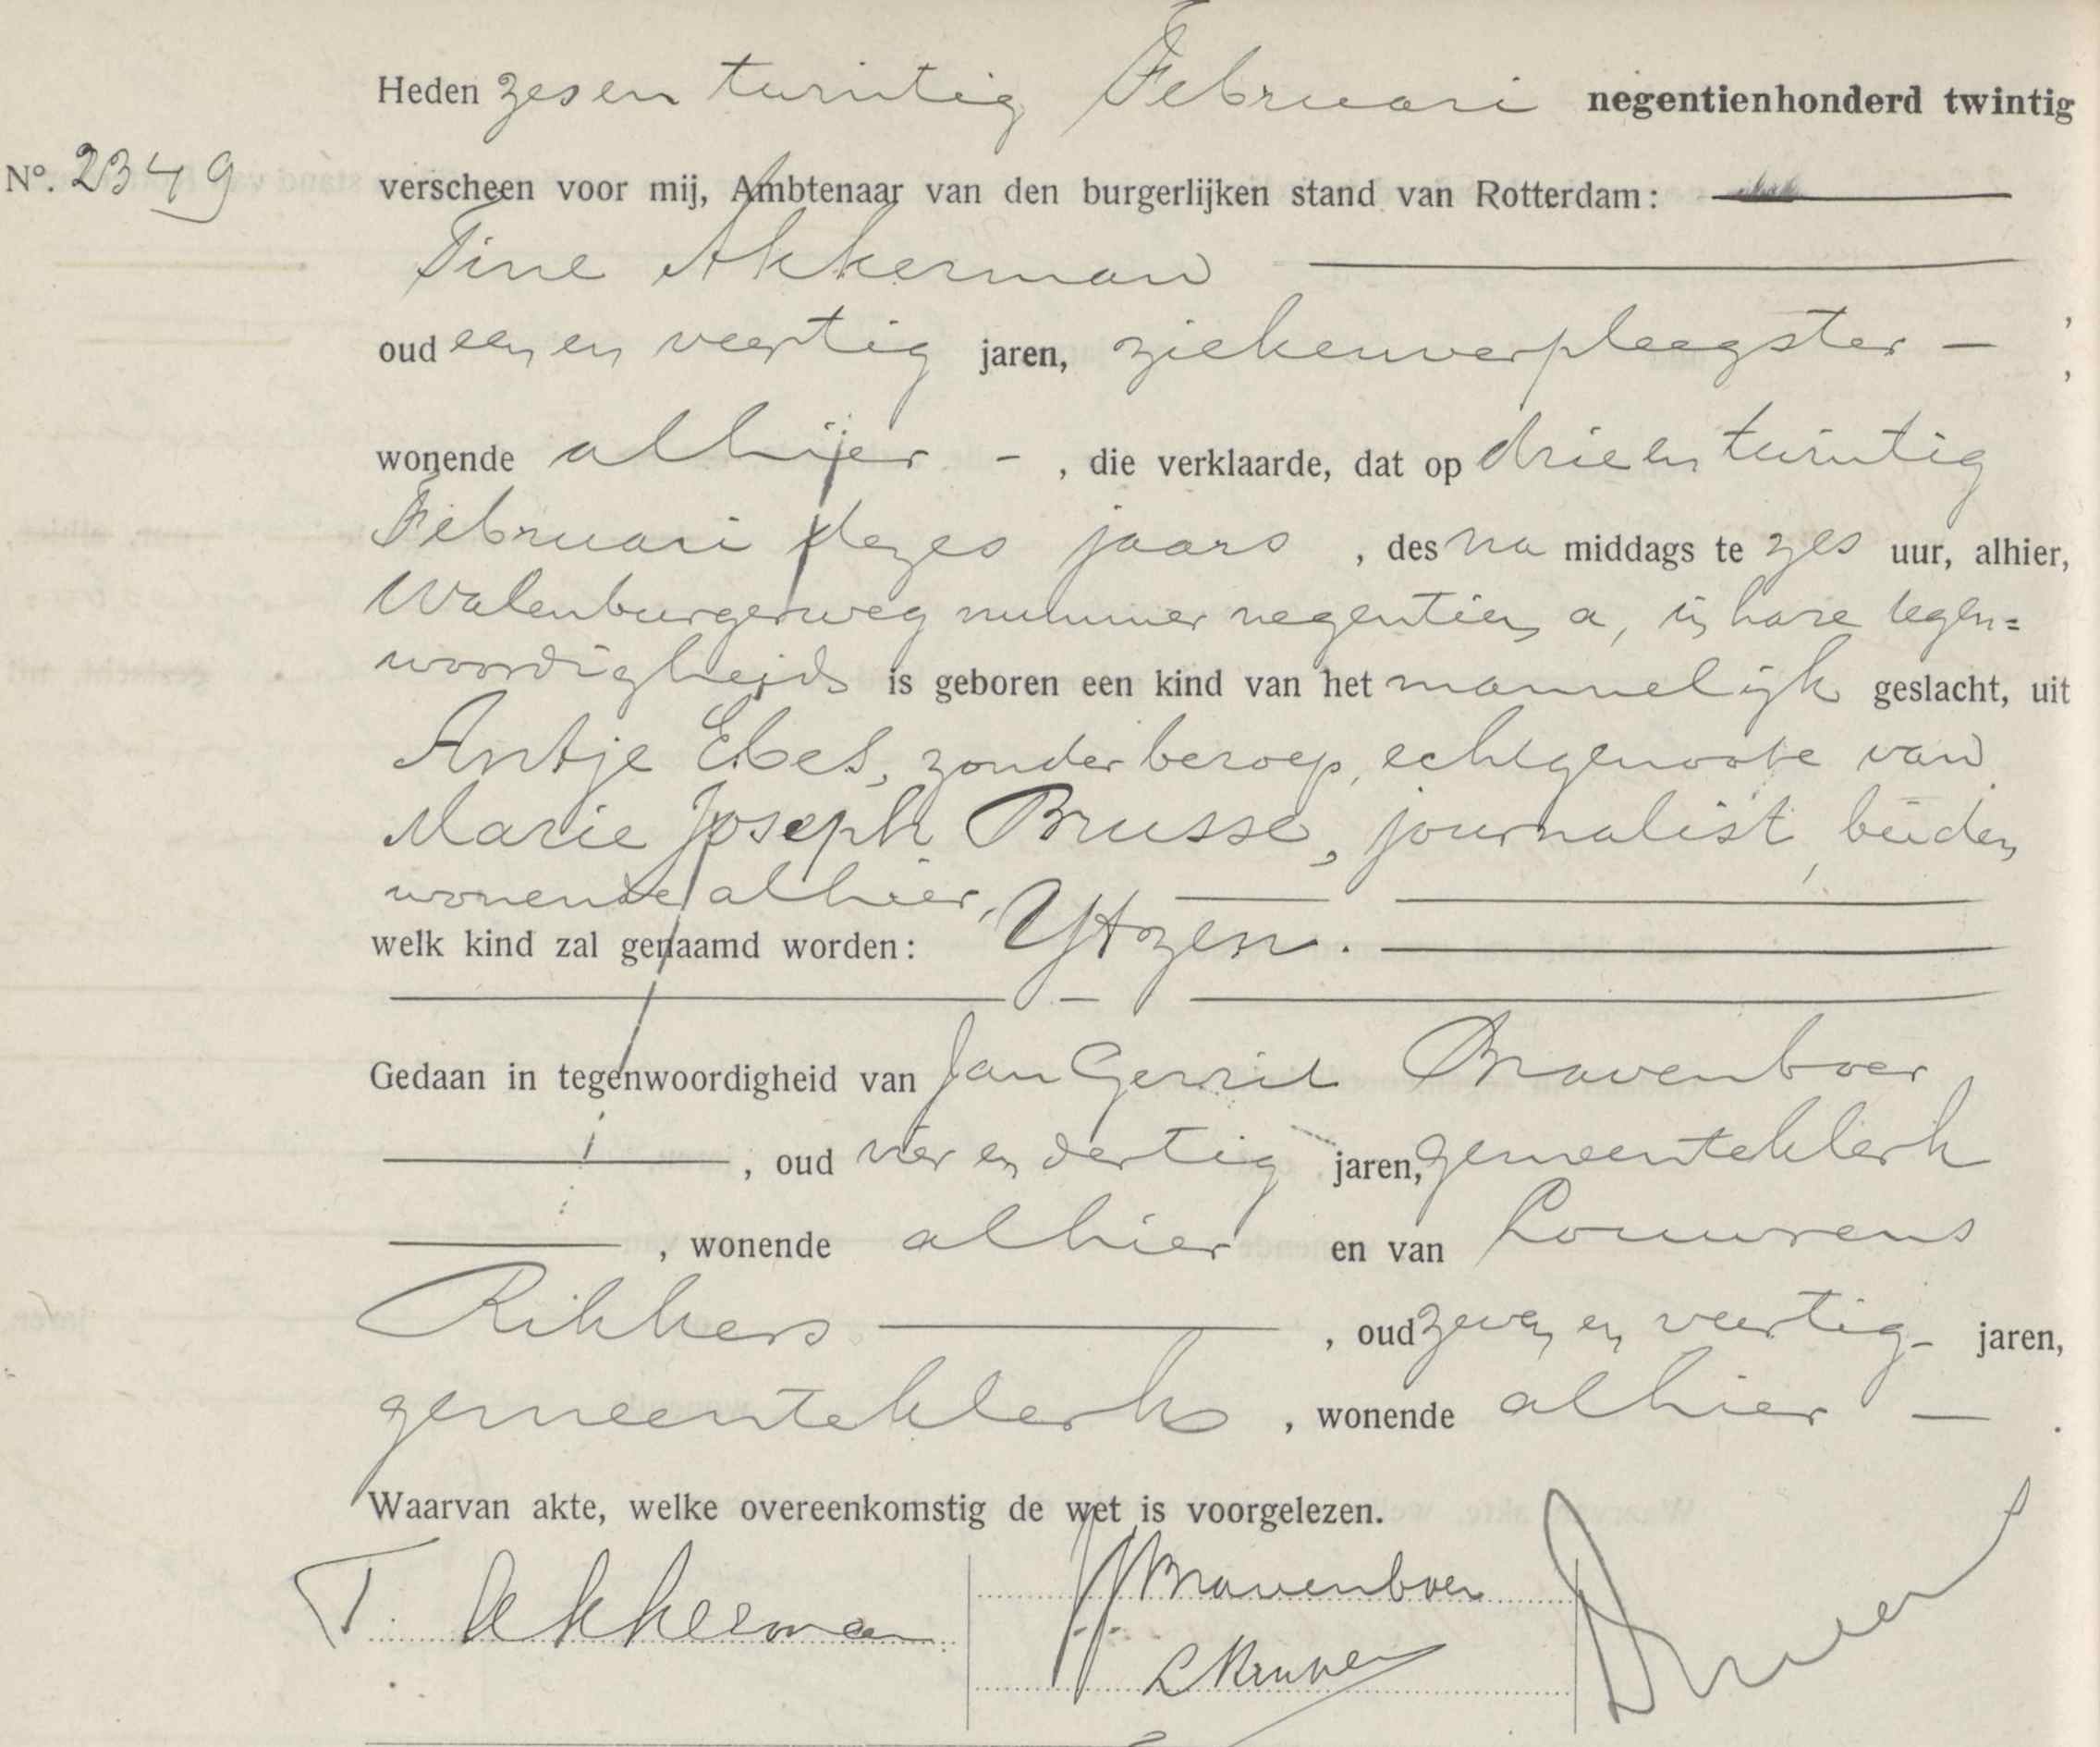 Heden zes en twintig Februari negentienhonderd twintig
No. 2349
verscheen voor mij, Ambtenaar van den burgerlijken stand van Rotterdam:
Tine Akkerman
oud een en veertig jaren, ziekenverpleegster —
wonende alhier - , die verklaarde, dat op drie en twintig
Februari dezes jaars , des na middags te zes uur, alhier,
Walenburgerweg nummer negentien a, in hare tegen=
woordigheid is geboren een kind van het mannelijk geslacht, uit
Antje Ebes, zonder beroep, echtgenoote van
Marie Joseph Brusse, journalist, beiden
wonende alhier,
welk kind zal genaamd worden: Ytzen.
Gedaan in tegenwoordigheid van Jan Gerrit Bravenboer
, oud vier en dertig jaren, gemeenteklerk
, wonende alhier en van Louwrens
Rikkers , oud zeven en veertig - jaren,
gemeenteklerk , wonende alhier — .
Waarvan akte, welke overeenkomstig de wet is voorgelezen.
T. Akkerman
JG Bravenboer